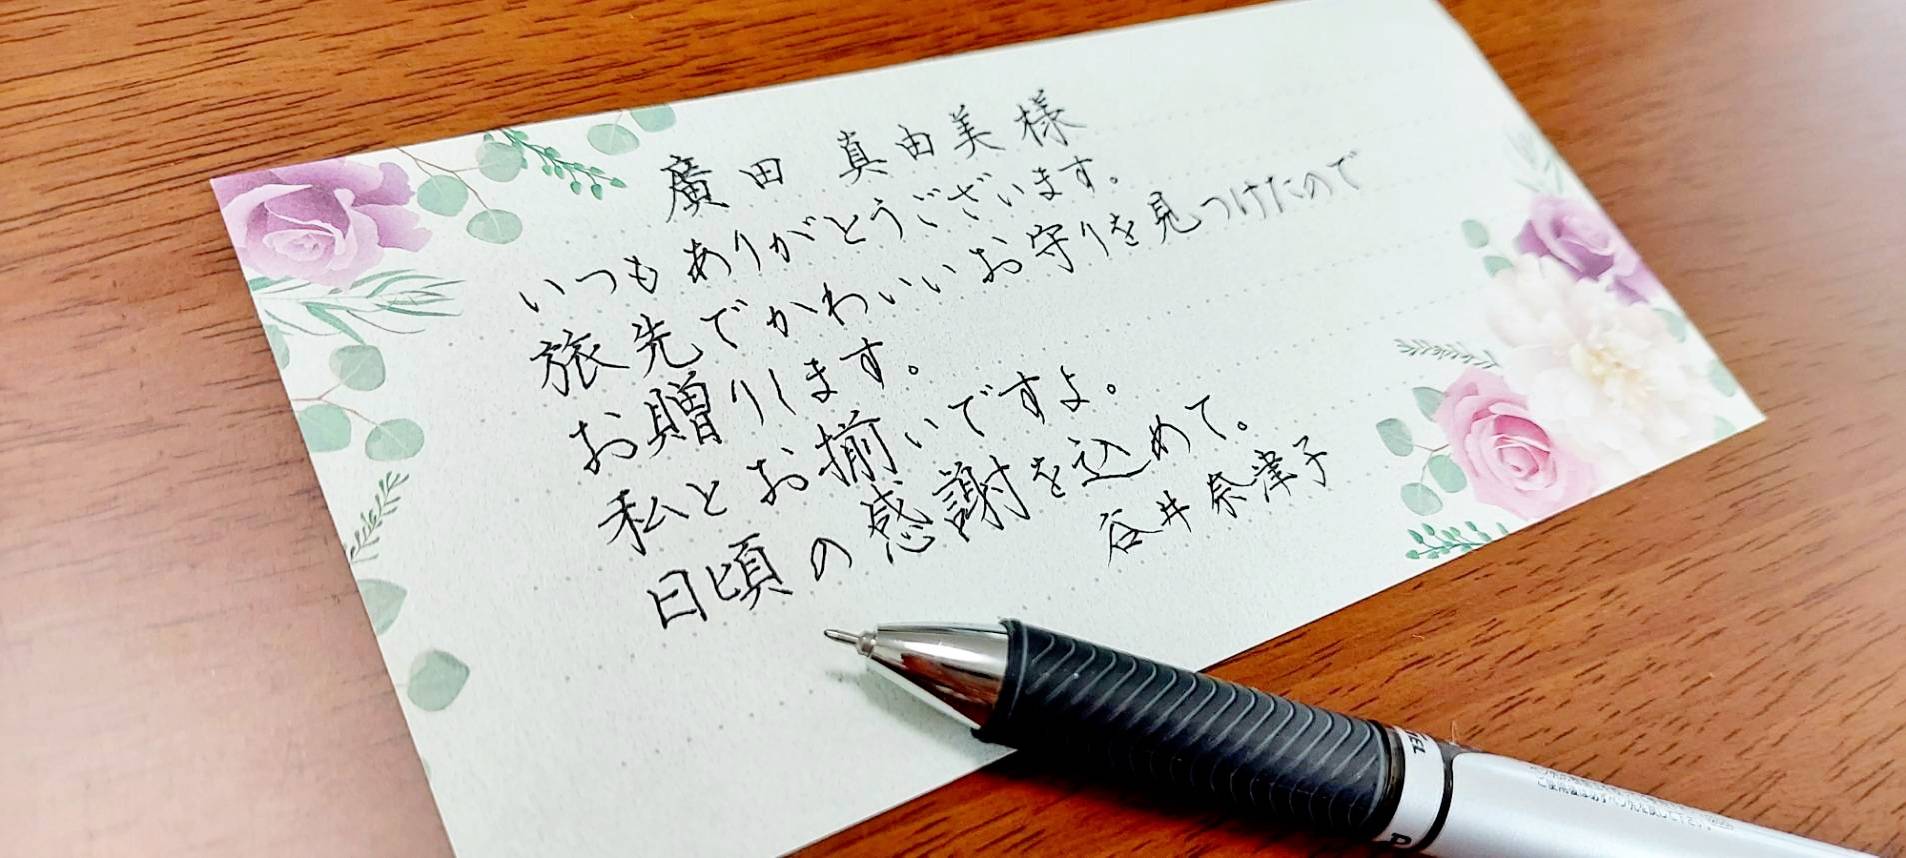 廣田 真由美 様
いつもありがとうございます。
旅先でかわいいお守りを見つけたので
お贈りします。
私とお揃いですよ。
日頃の感謝を込めて。
谷井奈津子